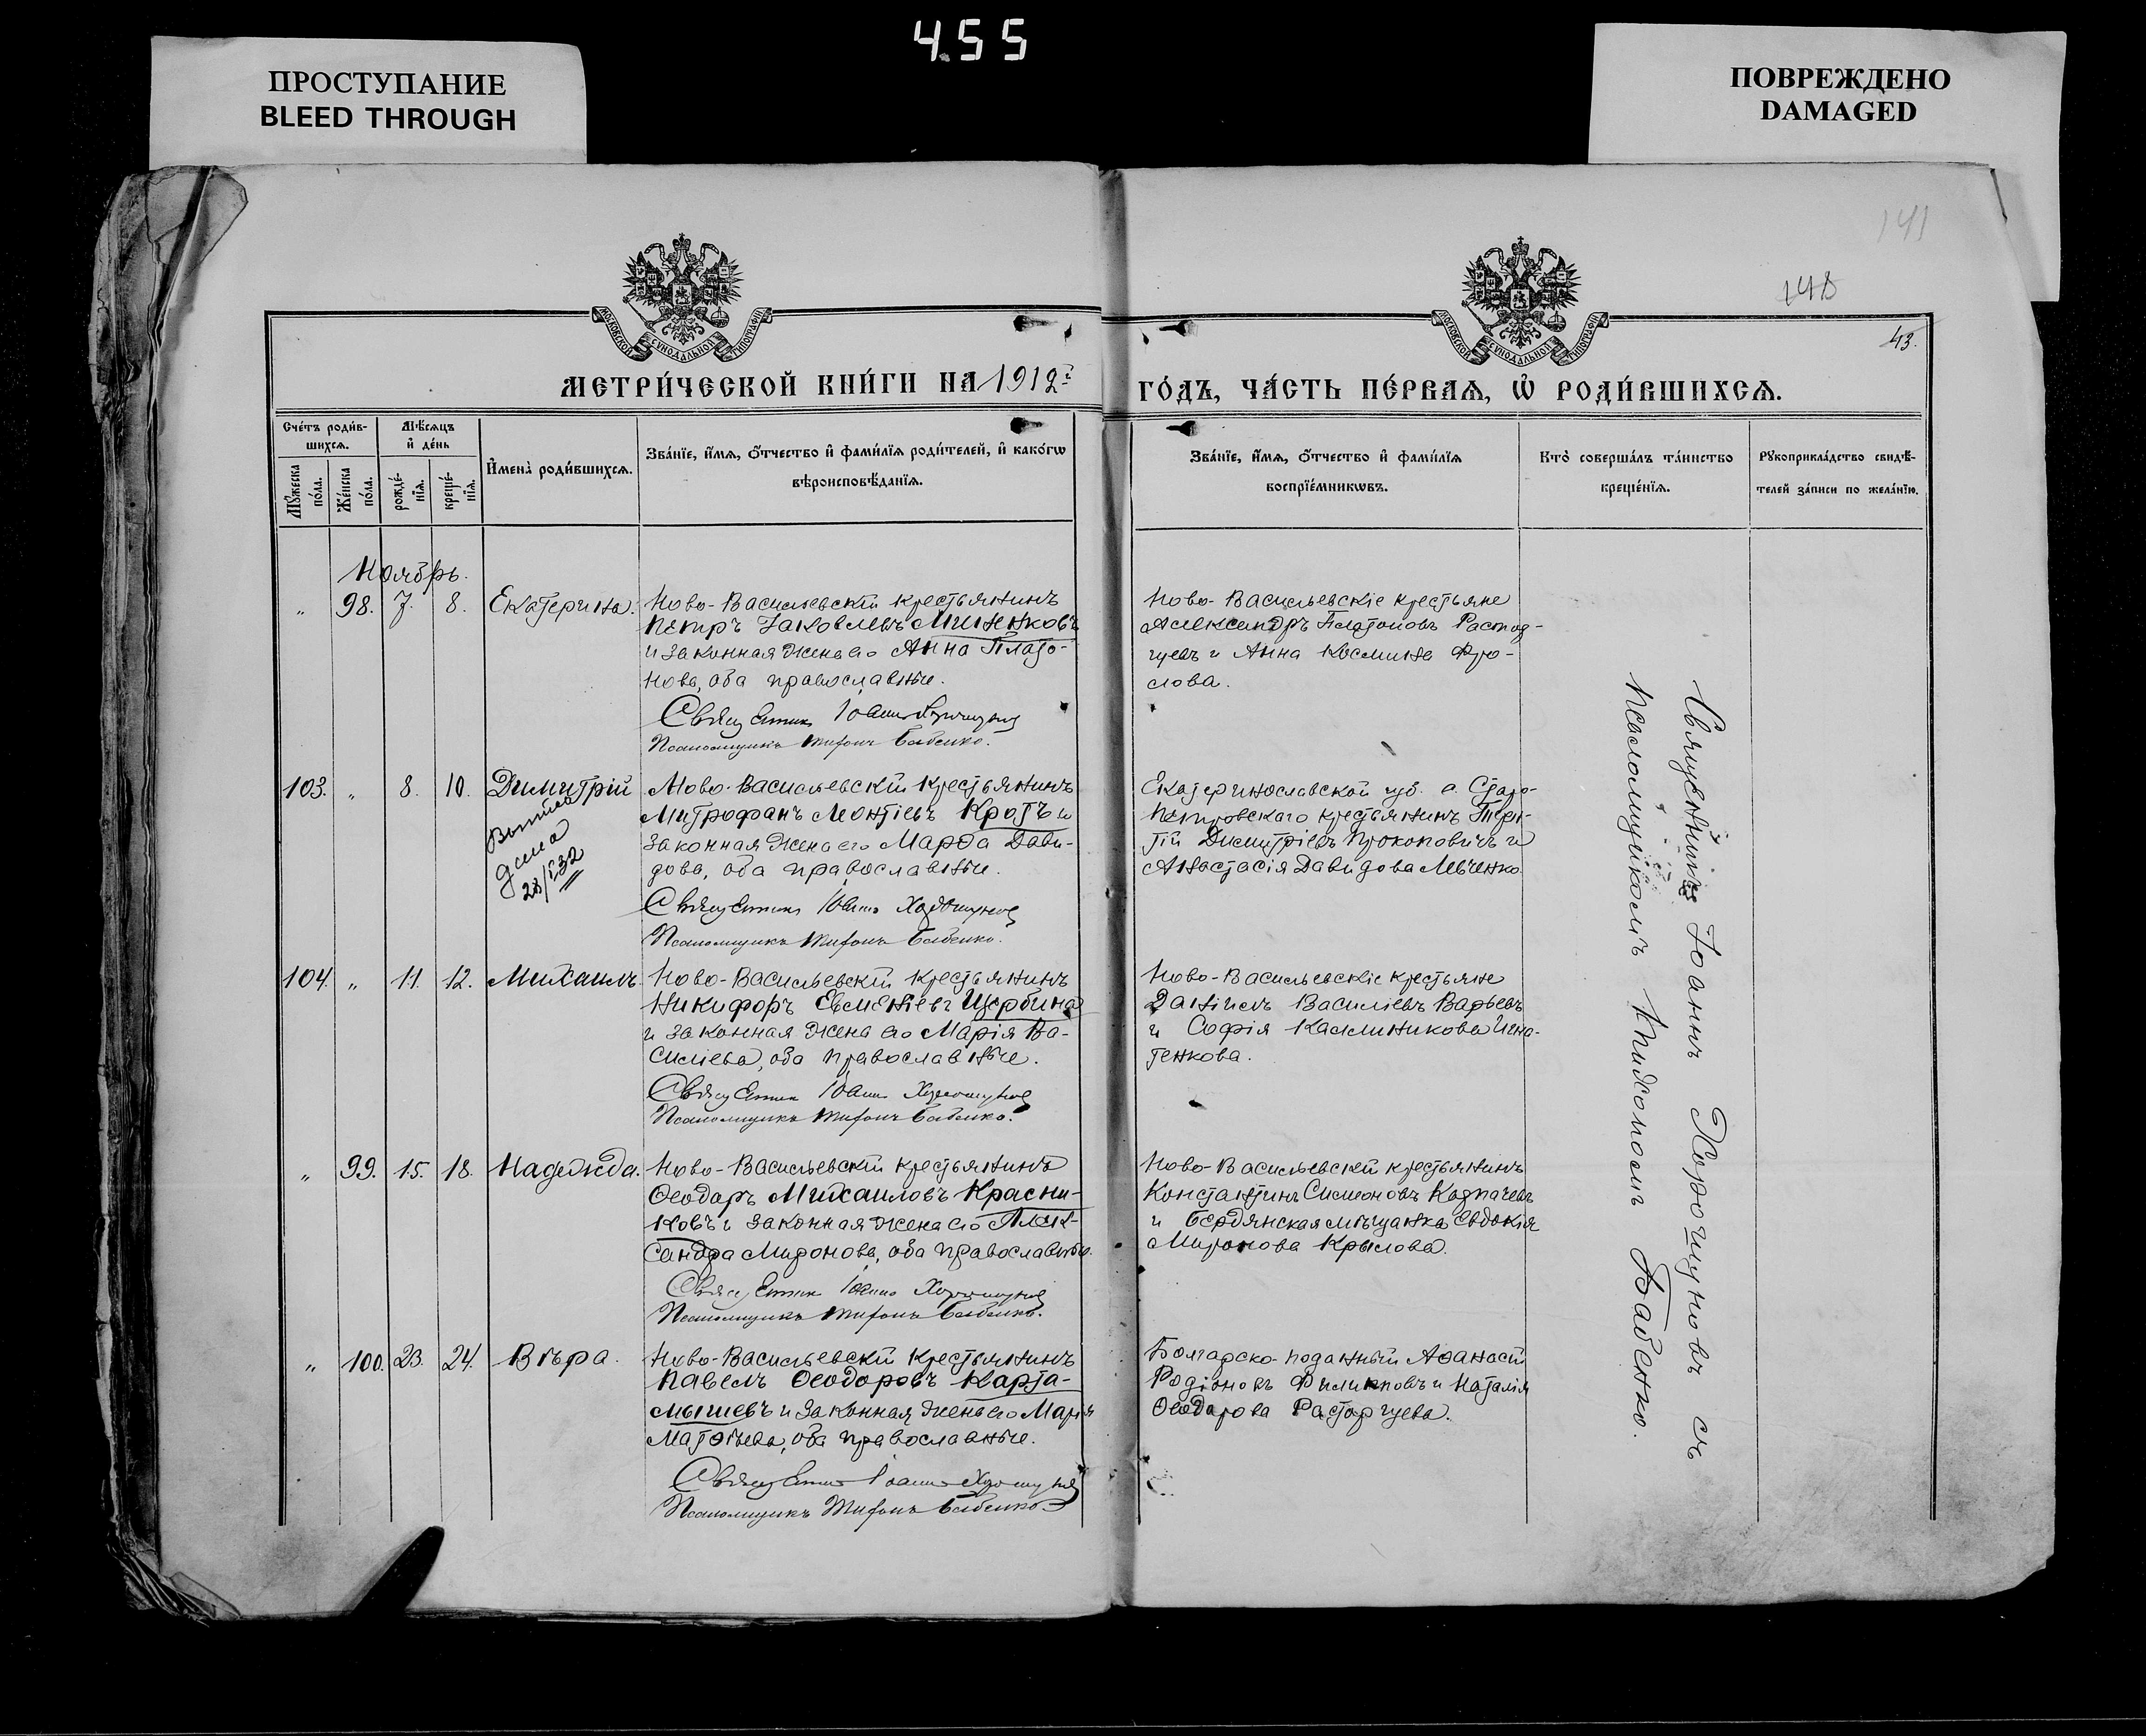 455
ПРОСТУПАНИЕ
BLEED THROUGH
ПОВРЕЖДЕНО
DAMAGED
141
148
43.
МОСКОВСКОЙ СѴНОДАЛЬНОЙ ТИПОГРАФІИ
МОСКОВСКОЙ СѴНОДАЛЬНОЙ ТИПОГРАФІИ
МЕТРИ́ЧЕСКОЙ КНИ́ГИ НА 1912 г.
ГО́ДЪ, ЧА́СТЬ ПЕ́РВАѦ, Ѡ҆ РОДИ́ВШИХСѦ.
Сче́тъ роди́в-
шихсѧ.
Мѣ́сѧцъ
и҆ де́нь
Мꙋ́жеска
по́ла.
Же́нска
по́ла.
рожде́-
нїѧ.
креще́-
нїѧ.
И҆мена̀ роди́вшихсѧ.
Зва́нїе, и҆́мѧ, ѻ҆́тчество и҆ фами́лїѧ роди́телей, и҆ како́гѡ
вѣроисповѣ́данїѧ.
Зва́нїе, и҆́мѧ, ѻ҆́тчество и҆ фами́лїѧ
воспрїе́мникѡвъ.
Кто̀ соверша́лъ та́инство
креще́нїѧ.
Рꙋкоприкла́дство свидѣ́-
телей за́писи по жела́нїю.
Ноябрь.
" 98. 7. 8. Екатерина.
Ново-Васильевскій крестьянинъ
Петръ Іаковлевъ Миненковъ
и законная жена его Анна Плато-
нова, оба православные.
Священникъ Іоаннъ Хорошуновъ
Псаломщикъ Тихонъ Бабенко.
Ново-Васильевскіе крестьяне
Александръ Платоновъ Растор-
гуевъ и Анна Космина Фро-
лова.
103. " 8. 10. Димитрій
28/І 32
Ново-Васильевскій крестьянинъ
Митрофанъ Леонтіевъ Кротъ и
законная жена его Марфа Дави-
дова, оба православные.
Священникъ Іоаннъ Хорошуновъ
Псаломщикъ Тихонъ Бабенко.
Екатеринославской губ. с. Старо-
Петровскаго крестьянинъ Терен-
тій Димитріевъ Прокоповичъ и
Анастасія Давидова Левченко
104. " 11. 12. Михаилъ.
Ново-Васильевскій крестьянинъ
Никифоръ Евменіевъ Щербина
и законная жена его Марія Ва-
силіева, оба православные.
Священникъ Іоаннъ Хорошуновъ
Псаломщикъ Тихонъ Бабенко.
Ново-Васильевскіе крестьяне
Даніилъ Василіевъ Варьевъ
и Софія Каллиникова Игна-
тенкова.
" 99. 15. 18. Надежда.
Ново-Васильевскій крестьянинъ
Ѳеодоръ Михаиловъ Красни-
ковъ и законная жена его Алек-
сандра Миронова, оба православные.
Священникъ Іоаннъ Хорошуновъ
Псаломщикъ Тихонъ Бабенко.
Ново-Васильевскій крестьянинъ
Константинъ Симеоновъ Казначевъ
и Бердянская мѣщанка Евдокія
Миронова Крылова.
" 100. 23. 24. Вѣра.
Ново-Васильевскій крестьянинъ
Павелъ Ѳеодоровъ Карта-
мышевъ и законная жена его Марія
Матѳѣева, оба православные.
Священникъ Іоаннъ Хорошуновъ
Псаломщикъ Тихонъ Бабенко
Болгарско-поданный Аѳанасій
Родіоновъ Филипповъ и Наталія
Ѳеодорова Расторгуева.
Священникъ Іоаннъ Хорошуновъ съ
Псаломщикомъ Тихономъ Бабенко.